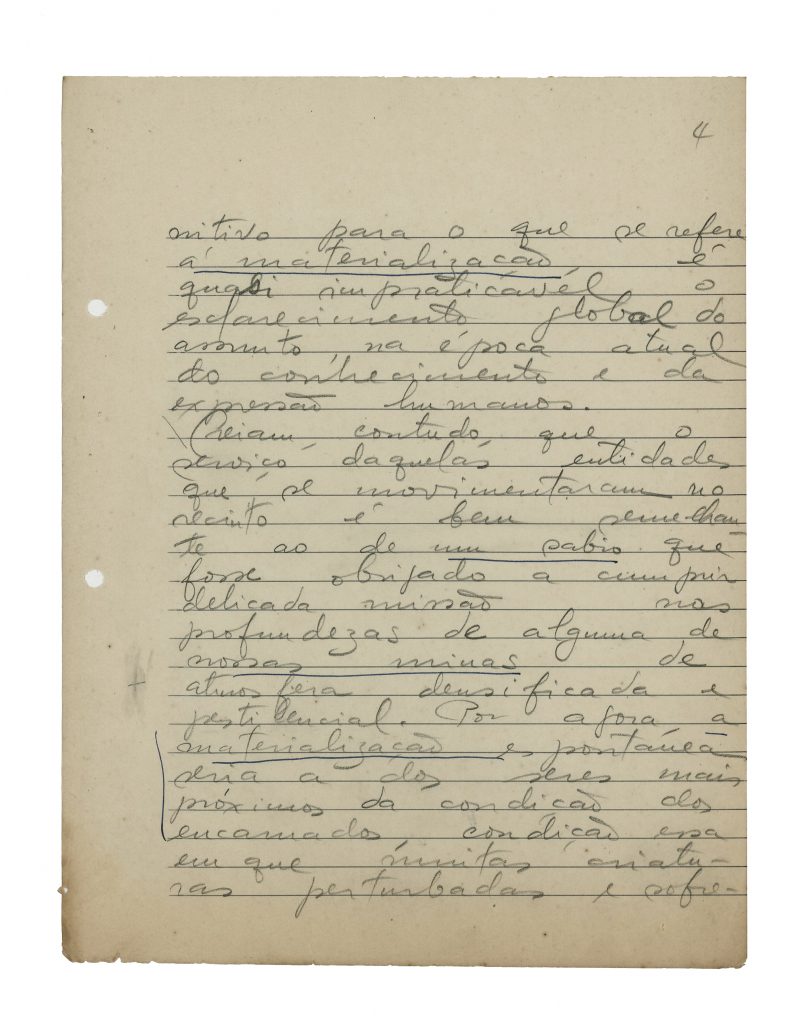 4
nitivo para o que se refere
á materialização, é
quasi impraticável o
esclarecimento global do
assunto, na época atual
do conhecimento e da
expressão humanos.
Creiam, contudo, que o
serviço daquelas entidades
que se movimentaram no
recinto é bem semelhan-
te ao de um sabio que
fosse obrigado a cumprir
delicada missão nas
profundezas de alguma de
nossas minas de
atmosfera densificada e
pestilencial. Por agora, a
materialização espontánea
seria a dos seres mais
próximos da condição dos
encarnados, condição essa
em que muitas criatu-
ras perturbadas e sofre-